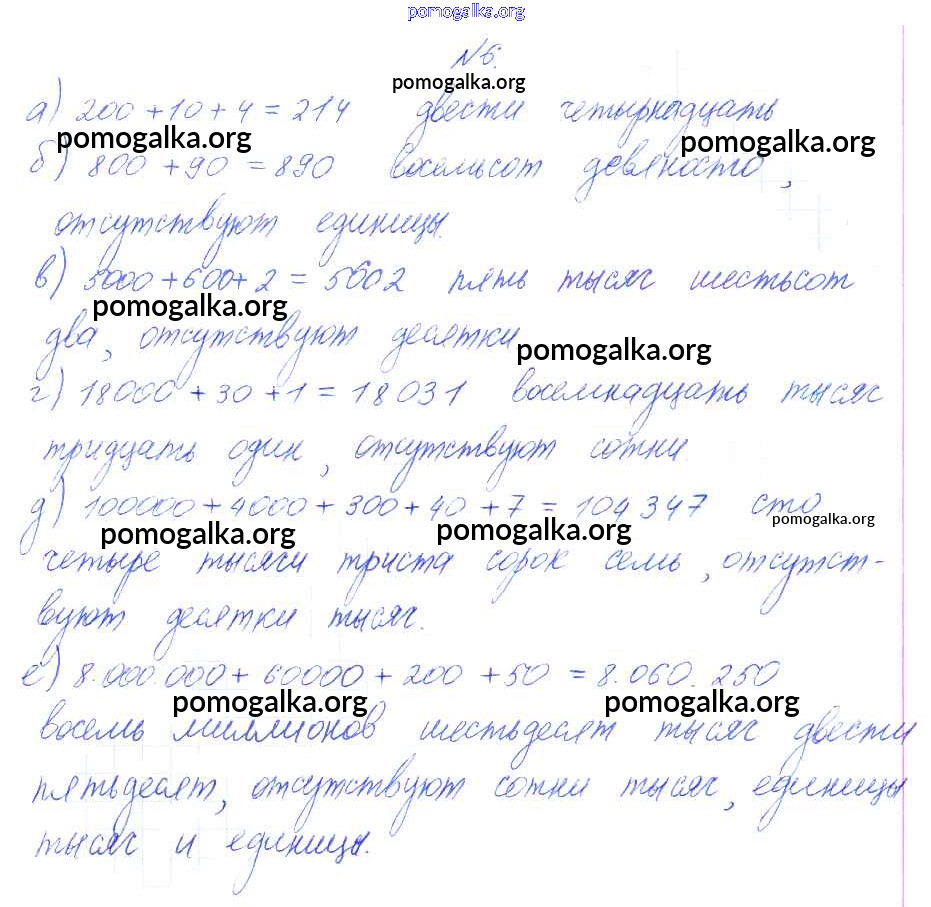 pomogalka.org
№6.
pomogalka.org
а) 200 + 10 + 4 = 214 двести четырнадцать
pomogalka.org pomogalka.org
б) 800 + 90 = 890 восемьсот девяносто,
отсутствуют единицы.
в) 5000 + 600 + 2 = 5602 пять тысяч шестьсот
pomogalka.org
два, отсутствуют десятки
pomogalka.org
г) 18000 + 30 + 1 = 18031 восемнадцать тысяч
тридцать один, отсутствуют сотни.
д) 100000 + 4000 + 300 + 40 + 7 = 104347 сто
pomogalka.org pomogalka.org pomogalka.org
четыре тысячи триста сорок семь, отсутст-
вуют десятки тысяч.
е) 8.000.000 + 60000 + 200 + 50 = 8.060.250
pomogalka.org pomogalka.org
восемь миллионов шестьдесят тысяч двести
пятьдесят, отсутствуют сотни тысяч, единицы
тысяч и единицы.